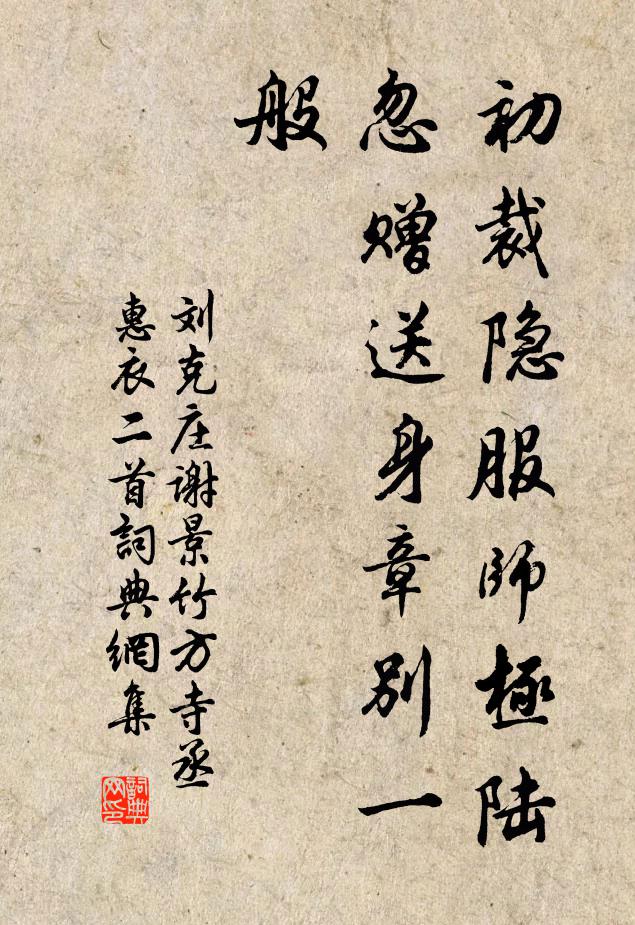 初裁隐服师極陆
忽赠送身章别一
般
刘克庄谢景竹方寺丞
惠衣二首詞典網集
詞典
网印